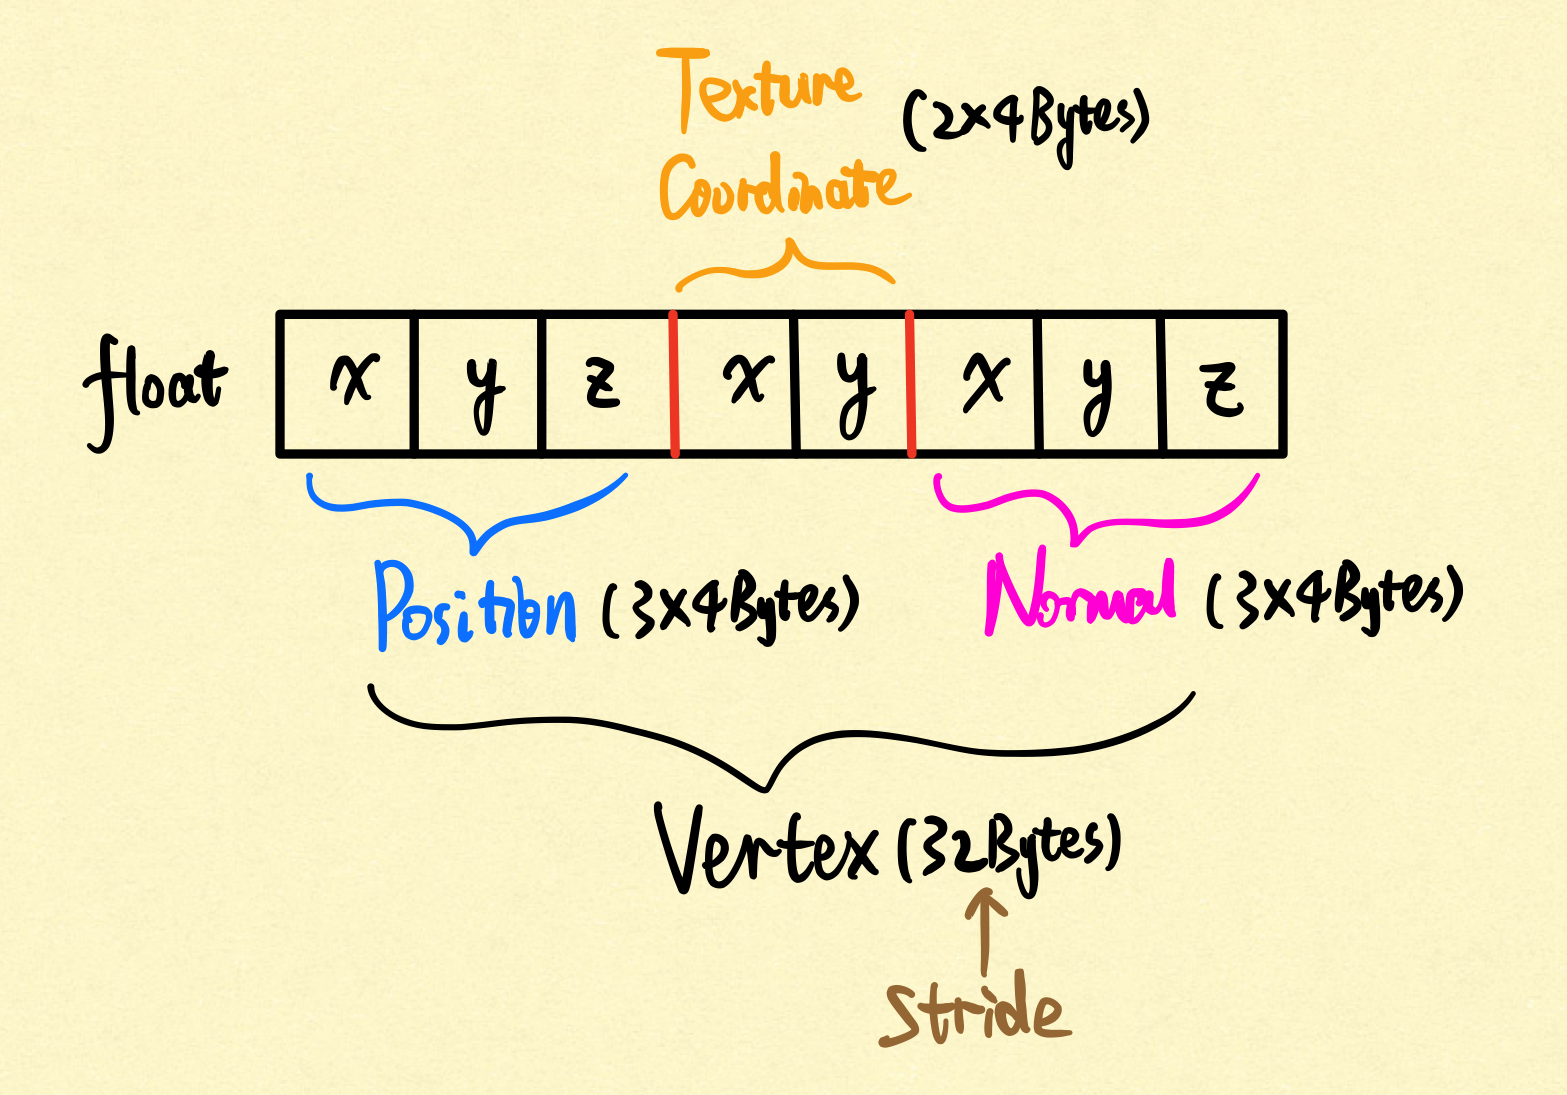 Texture
Coordinate
(2x4Bytes)
float x y z x y x y z
Position (3x4Bytes)
Normal (3x4Bytes)
Vertex (32Bytes)
Stride